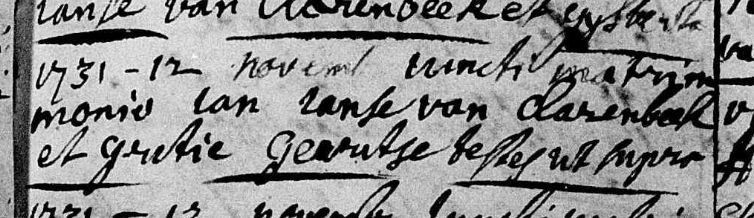 ianse van Clarenbeek et
1731 - 12 novemb iuncti matrim
monio ian ianse van Clarenbeek
et gretie gerritse testes ut supra
1731 - 12 novemb